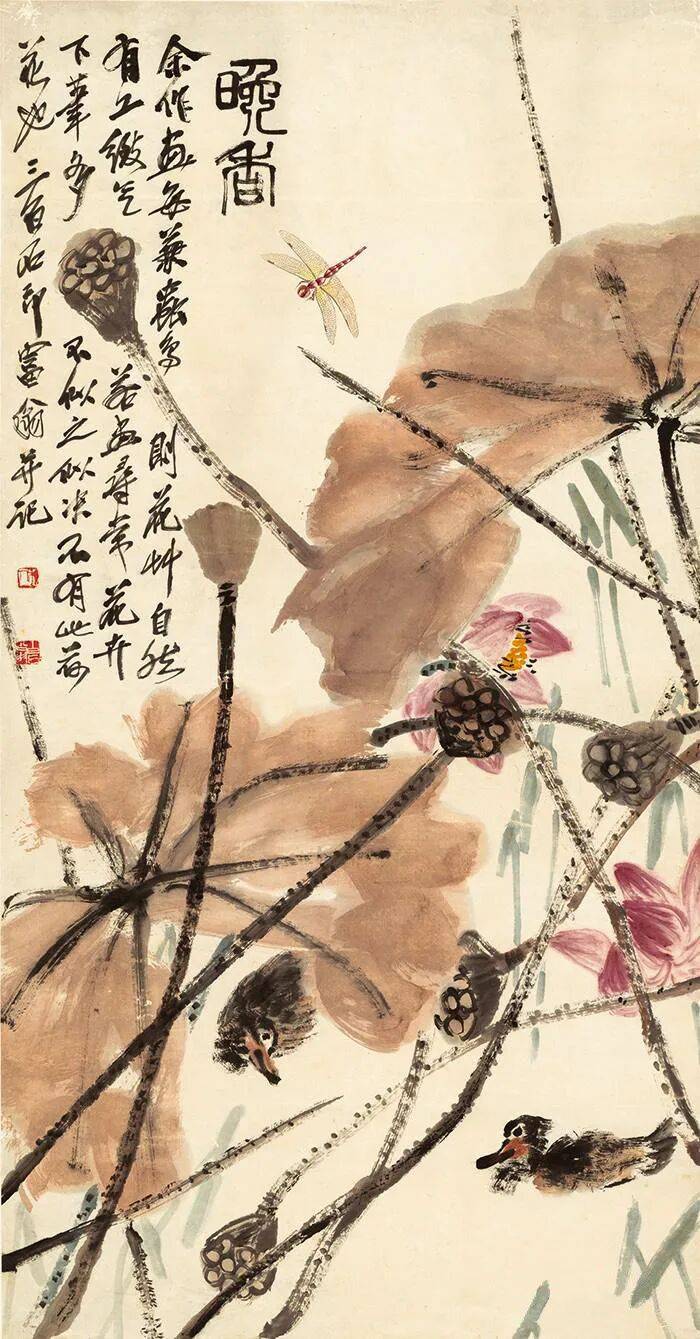 晚香
余作畫每兼蟲鳥則花艸自然
有工緻气若畫尋常花卉
下筆多不似之似决不有此荷
花也三百石印富翁并記